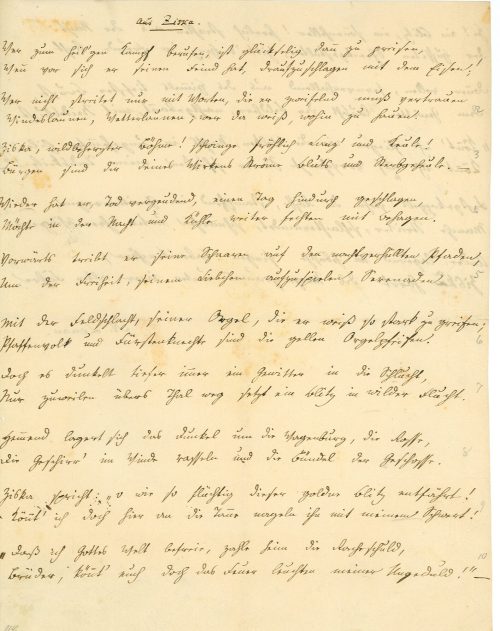 Aus Ziska.
Wer zum heil'gen Kampf berufen, ist glückselig dann zu preisen,
Wenn vor sich er seinen Feind hat, draufzuschlagen mit dem Eisen!
Wer nicht streitet nur mit Worten, die er zweifelnd muß vertrauen
Windeslaunen, Wetterlaunen; wer da weiß wohin zu hauen.
Ziska, wildbeherzter Böhme! schwinge fröhlich und Keule!
Bürgen sind dir deines Wirkens Ströme Bluts und Sterbgeheule. —
Wieder hat er, Tod vergeudend, einen Tag hindurch geschlagen
Möchte in der Nacht und Kühle weiter fechten mit Behagen.
Vorwärts treibt er seine Schaaren auf den nachtverhüllten Pfaden,
Um der Freiheit, seinem Liebchen aufzuspielen Serenaden
Mit der Feldschlacht, seiner Orgel, die er weiß so stark zu greifen;
Pfaffenvolk und Fürstenknechte sind die gellen Orgelpfeifen.
Doch es dunkelt tiefer immer ein Gewitter in die Schlucht,
Nur zuweilen übers Thal weg setzt ein Blitz in wilder Flucht.
Hemmend lagert sich das Dunkel um die Wagenburg, die Rosse,
Die Geschirr' im Winde rasseln und die Bündel der Geschosse.
Ziska spricht: „o wie so flüchtig dieser goldne Blitz entfährt!
Könnt' ich doch hier an die Tanne nageln ihn mit meinem Schwert!
„Daß ich Gottes Welt befreie, zahle heim die Racheschuld,
Brüder, könnt' euch doch das Feuer leuchten meiner Ungeduld!" —